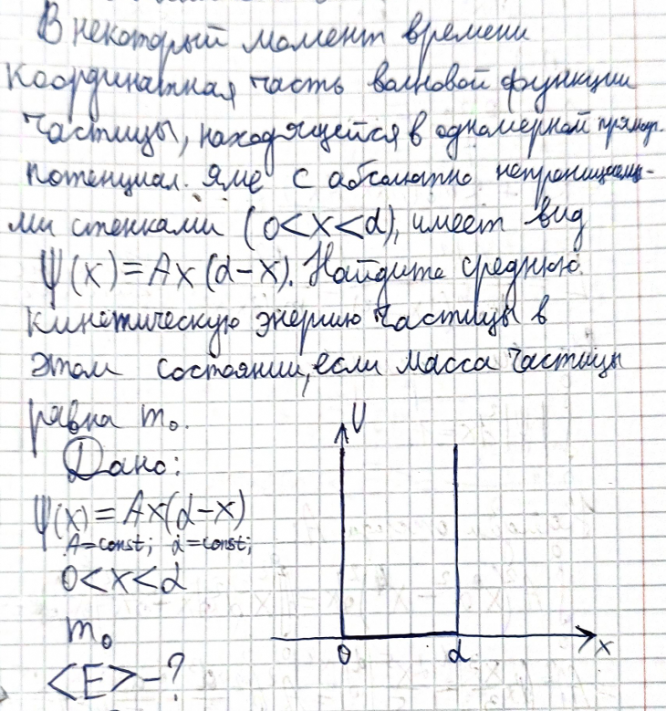 В некоторый момент времени
координатная часть волновой функции
частицы, находящейся в одномерной прямоуг.
потенциал. яме с абсолютно непроницаемы-
ми стенками (0<x<d), имеет вид
Ψ(x)=Ax(d-x). Найдите среднюю
кинетическую энергию частицы в
этом состоянии, если масса частицы
равна m₀.
Дано:
Ψ(x)=Ax(d-x)
A=const; d=const;
0<x<d
m₀
<E>-?
U
0
d
x